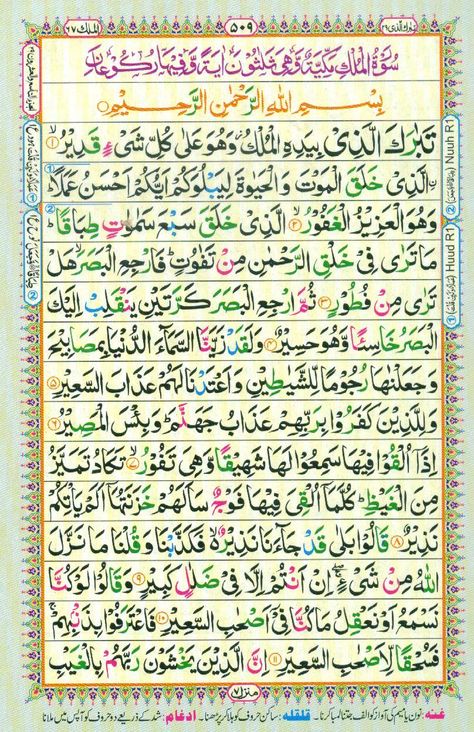 الملك ٦٧
٥٠٩
تبٰرك الذی ٢٩
سُوْرَةُ الْمُلْكِ مَكِّيَّةٌ وَّهِيَ ثَلٰثُوْنَ اٰيَةً وَّفِيْهَا رُكُوْعَانِ
بِسْمِ اللّٰهِ الرَّحْمٰنِ الرَّحِيْمِ
تَبٰرَكَ الَّذِيْ بِيَدِهِ الْمُلْكُ وَهُوَ عَلٰى كُلِّ شَيْءٍ قَدِيْرُ ۙ﴿١﴾
ۨالَّذِيْ خَلَقَ الْمَوْتَ وَ الْحَيٰوةَ لِيَبْلُوَكُمْ اَيُّكُمْ اَحْسَنُ عَمَلًا ؕ
وَهُوَ الْعَزِيْزُ الْغَفُوْرُ ۙ﴿٢﴾ الَّذِيْ خَلَقَ سَبْعَ سَمٰوٰتٍ طِبَاقًا ؕ
مَا تَرٰى فِيْ خَلْقِ الرَّحْمٰنِ مِنْ تَفٰوُتٍ ؕ فَارْجِعِ الْبَصَرَ ۙ هَلْ
تَرٰى مِنْ فُطُوْرٍ ﴿٣﴾ ثُمَّ ارْجِعِ الْبَصَرَ كَرَّتَيْنِ يَنْقَلِبْ اِلَيْكَ
الْبَصَرُ خَاسِئًا وَّهُوَ حَسِيْرٌ ﴿٤﴾ وَلَقَدْ زَيَّنَّا السَّمَآءَ الدُّنْيَا بِمَصَابِيْحَ
وَجَعَلْنٰهَا رُجُوْمًا لِّلشَّيٰطِيْنِ وَ اَعْتَدْنَا لَهُمْ عَذَابَ السَّعِيْرِ ﴿٥﴾
وَلِلَّذِيْنَ كَفَرُوْا بِرَبِّهِمْ عَذَابُ جَهَنَّمَ ؕ وَبِئْسَ الْمَصِيْرُ ﴿٦﴾
اِذَاۤ اُلْقُوْا فِيْهَا سَمِعُوْا لَهَا شَهِيْقًا وَّهِيَ تَفُوْرُ ۙ﴿٧﴾ تَكَادُ تَمَيَّزُ
مِنَ الْغَيْظِ ؕ كُلَّمَاۤ اُلْقِيَ فِيْهَا فَوْجٌ سَاَلَهُمْ خَزَنَتُهَاۤ اَلَمْ يَاْتِكُمْ
نَذِيْرٌ ﴿٨﴾ قَالُوْا بَلٰى قَدْ جَآءَنَا نَذِيْرٌ ۙ فَكَذَّبْنَا وَقُلْنَا مَا نَزَّلَ
اللّٰهُ مِنْ شَيْءٍ ۖۚ اِنْ اَنْتُمْ اِلَّا فِيْ ضَلٰلٍ كَبِيْرٍ ﴿٩﴾ وَقَالُوْا لَوْ كُنَّا
نَسْمَعُ اَوْ نَعْقِلُ مَا كُنَّا فِيْۤ اَصْحٰبِ السَّعِيْرِ ﴿١٠﴾ فَاعْتَرَفُوْا بِذَنْۢبِهِمْ ۚ
فَسُحْقًا لِّاَصْحٰبِ السَّعِيْرِ ﴿١١﴾ اِنَّ الَّذِيْنَ يَخْشَوْنَ رَبَّهُمْ بِالْغَيْبِ
منزل ٧
غنہ: نون یا میم کی آواز کو الف جتنا لمبا کرنا۔ قلقلہ: ساکن حروف کو ہلا کر پڑھنا۔ ادغام: شد کے ذریعے دو حروف کو آپس میں ملانا
② Nuuh R1
① Huud R1